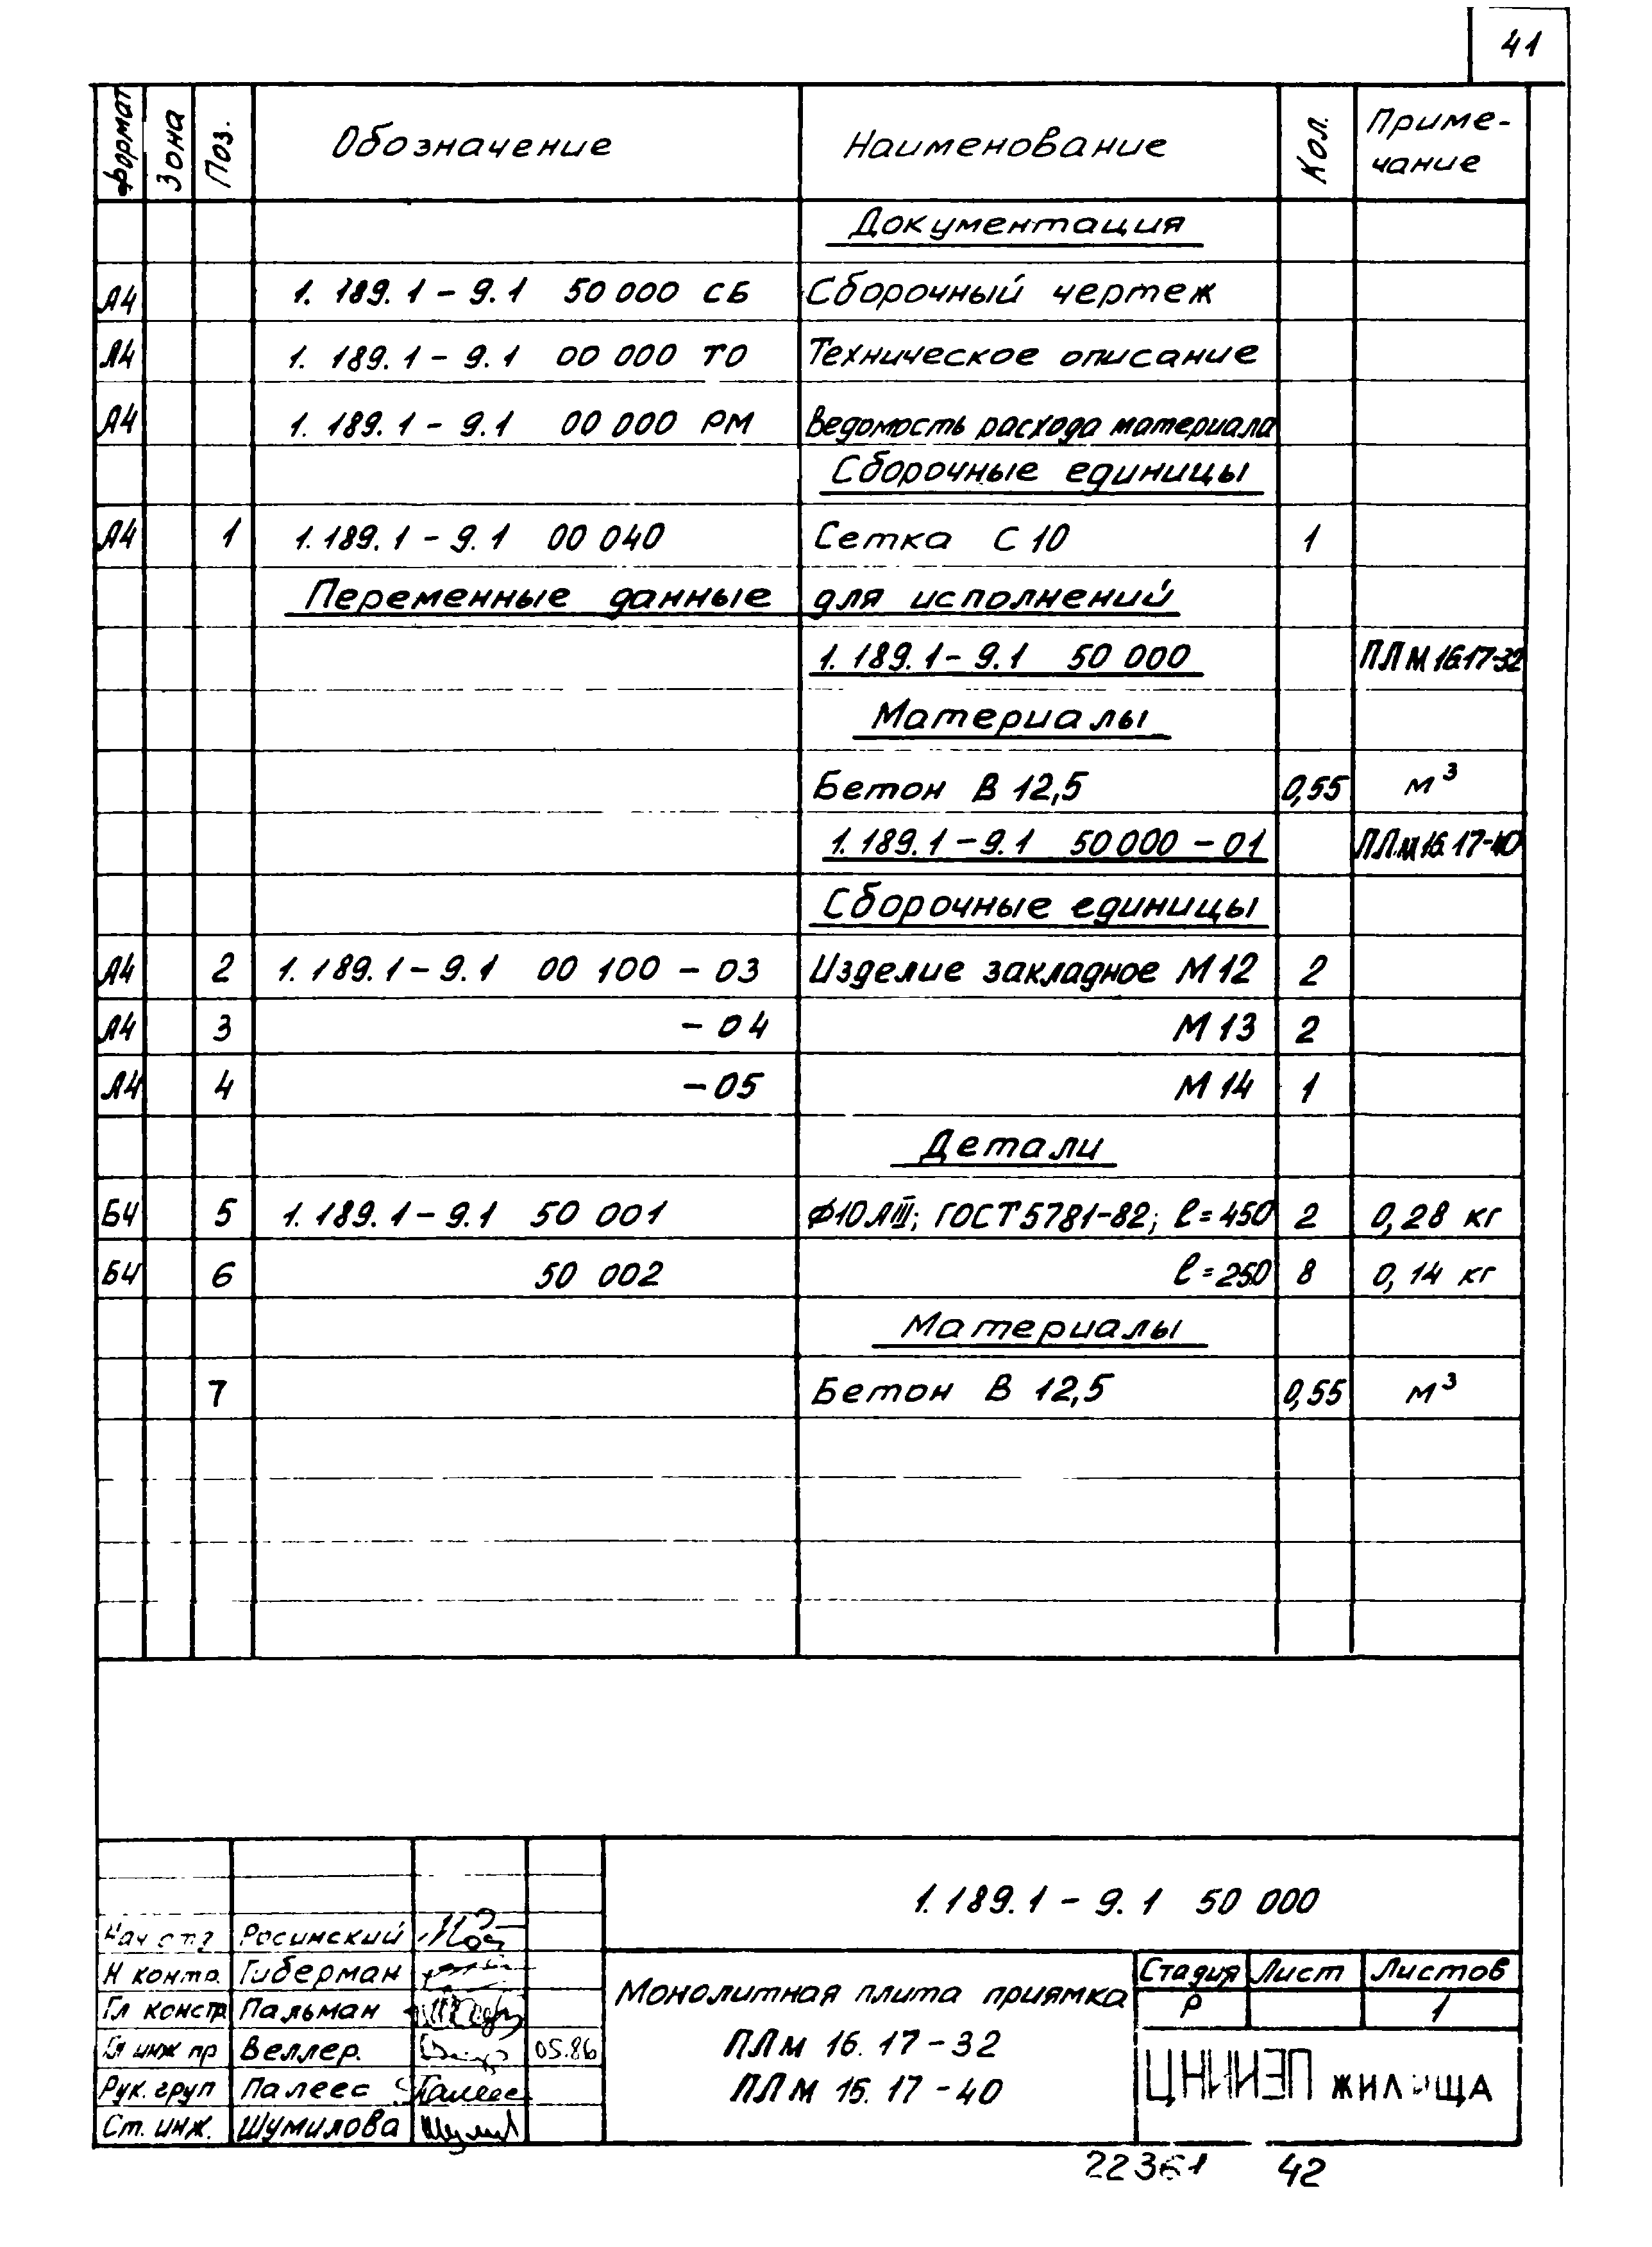 41
Формат Зона Поз. Обозначение Наименование Кол. Приме-
чание
Документация
А4 1.189.1-9.1 50 000 СБ Сборочный чертеж
А4 1.189.1-9.1 00 000 ТО Техническое описание
А4 1.189.1-9.1 00 000 РМ Ведомость расхода материала
Сборочные единицы
А4 1 1.189.1-9.1 00 040 Сетка С 10 1
Переменные данные для исполнений
1.189.1-9.1 50 000 ПЛм 16.17-32
Материалы
Бетон В 12,5 0,55 м³
1.189.1-9.1 50 000-01 ПЛм 16.17-40
Сборочные единицы
А4 2 1.189.1-9.1 00 100-03 Изделие закладное М12 2
А4 3 -04 М13 2
А4 4 -05 М14 1
Детали
БЧ 5 1.189.1-9.1 50 001 Ф10АIII; ГОСТ 5781-82; l=450 2 0,28 кг
БЧ 6 50 002 l=250 8 0,14 кг
Материалы
7 Бетон В 12,5 0,55 м³
1.189.1-9.1 50 000
Нач отд Росинский
Н контр. Гиберман
Гл констр Пальман
Гл инж пр Веллер. 05.86
Рук. груп Палеес Палеес
Ст. инж. Шумилова
Монолитная плита приямка
ПЛм 16.17-32
ПЛм 16.17-40
Стадия Лист Листов
Р 1
ЦНИИЭП жилища
22361 42